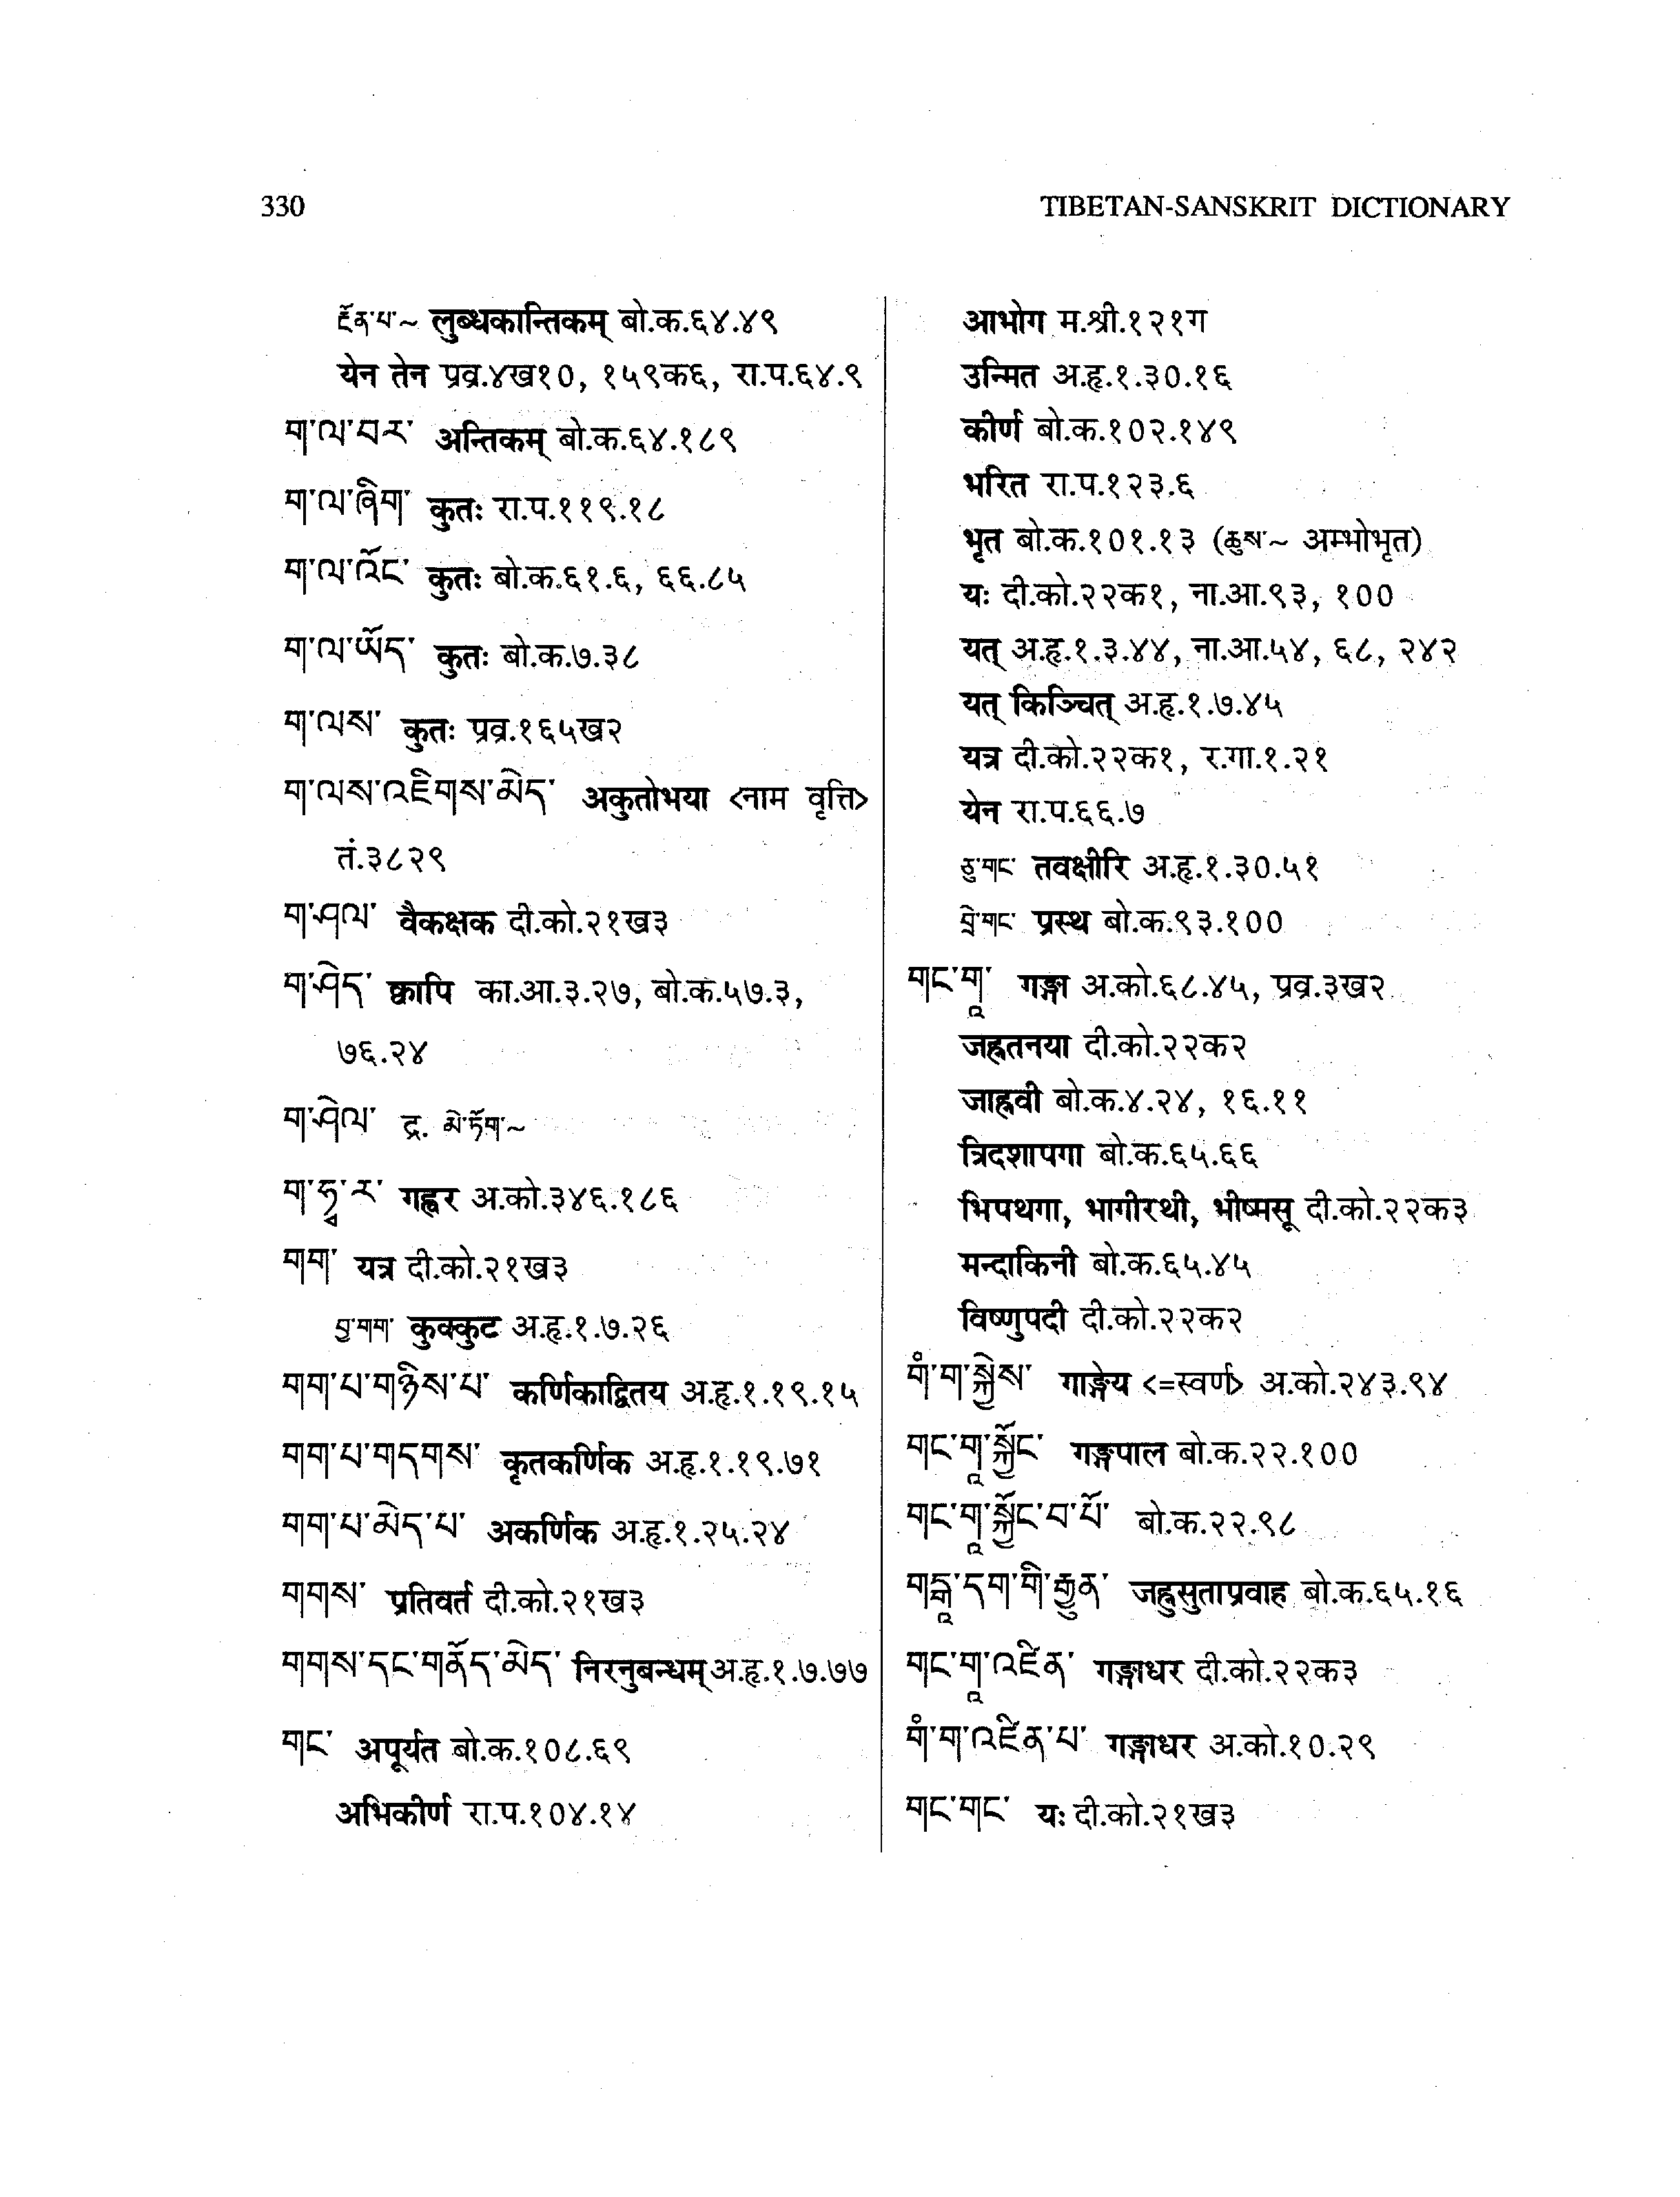 330
TIBETAN-SANSKRIT DICTIONARY
རྔོན་པ་~ लुब्धकान्तिकम् बो.क.६४.४९
येन तेन प्रव्र.४ख१०, १५९क६, रा.प.६४.९
ག་ལ་བར་ अन्तिकम् बो.क.६४.१८९
ག་ལ་ཞིག་ कुतः रा.प.११९.१८
ག་ལ་འོང་ कुतः बो.क.६१.६, ६६.८५
ག་ལ་ཡོད་ कुतः बो.क.७.३८
ག་ལས་ कुतः प्रव्र.१६५ख२
ག་ལས་འཇིགས་མེད་ अकुतोभया <नाम वृत्ति>
तं.३८२९
ག་ཤལ་ वैकक्षक दी.को.२१ख३
ག་ཤེད་ क्वापि का.आ.३.२७, बो.क.५७.३,
७६.२४
ག་ཤེལ་ द्र. མེ་ཏོག་~
ག་ཧྭ་ར་ गह्वर अ.को.३४६.१८६
གག་ यत्र दी.को.२१ख३
བྱ་གག་ कुक्कुट अ.हृ.१.७.२६
གག་པ་གཉིས་པ་ कर्णिकाद्वितय अ.हृ.१.१९.१५
གག་པ་གདགས་ कृतकर्णिक अ.हृ.१.१९.७१
གག་པ་མེད་པ་ अकर्णिक अ.हृ.१.२५.२४
གགས་ प्रतिवर्त दी.को.२१ख३
གགས་དང་གནོད་མེད་ निरनुबन्धम् अ.हृ.१.७.७७
གང་ अपूर्यत बो.क.१०८.६९
अभिकीर्ण रा.प.१०४.१४
आभोग म.श्री.१२१ग
उन्मित अ.हृ.१.३०.१६
कीर्ण बो.क.१०२.१४९
भरित रा.प.१२३.६
भृत बो.क.१०१.१३ (ཆུས་~ अम्भोभृत)
यः दी.को.२२क१, ना.आ.९३, १००
यत् अ.हृ.१.३.४४, ना.आ.५४, ६८, २४२
यत् किञ्चित् अ.हृ.१.७.४५
यत्र दी.को.२२क१, र.गा.१.२१
येन रा.प.६६.७
ཅུ་གང་ तवक्षीरि अ.हृ.१.३०.५१
བྲེ་གང་ प्रस्थ बो.क.९३.१००
གང་གཱ་ गङ्गा अ.को.६८.४५, प्रव्र.३ख२
जह्नतनया दी.को.२२क२
जाह्नवी बो.क.४.२४, १६.११
त्रिदशापगा बो.क.६५.६६
भिपथगा, भागीरथी, भीष्मसू दी.को.२२क३
मन्दाकिनी बो.क.६५.४५
विष्णुपदी दी.को.२२क२
གཾ་ག་སྐྱེས་ गाङ्गेय <=स्वर्ण> अ.को.२४३.९४
གང་གཱ་སྐྱོང་ गङ्गपाल बो.क.२२.१००
གང་གཱ་སྐྱོང་བ་པོ་ बो.क.२२.९८
གངྒཱ་དག་གི་རྒྱུན་ जह्नुसुताप्रवाह बो.क.६५.१६
གང་གཱ་འཛིན་ गङ्गाधर दी.को.२२क३
གཾ་ག་འཛིན་པ་ गङ्गाधर अ.को.१०.२९
གང་གང་ यः दी.को.२१ख३